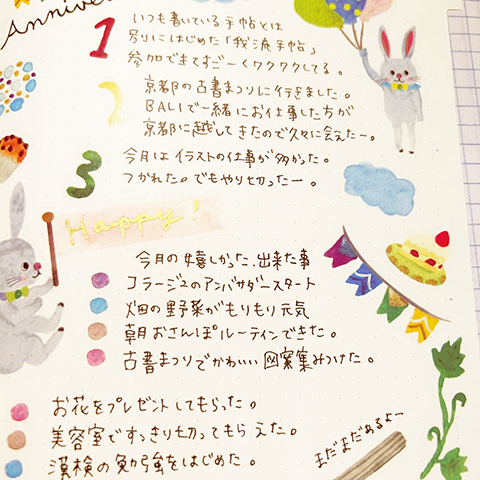 Annive
1
いつも書いている手帖とは
別にはじめた「我流手帖」
参加できてすごーくワクワクしてる。
2
京都の古書まつりに行きました。
BALIで一緒にお仕事した方が
京都に越してきたので久々に会えたー。
3
今月はイラストの仕事が多かった。
つかれた。でもやり切ったー。
Happy!
今月の嬉しかった出来事
コラージュのアンバサダースタート
畑の野菜がもりもり元気
朝おさんぽルーティンできた。
古書まつりでかわいい図案集みつけた。
お花をプレゼントしてもらった。
美容室ですっきり切ってもらえた。
漢検の勉強をはじめた。
まだまだあるよー